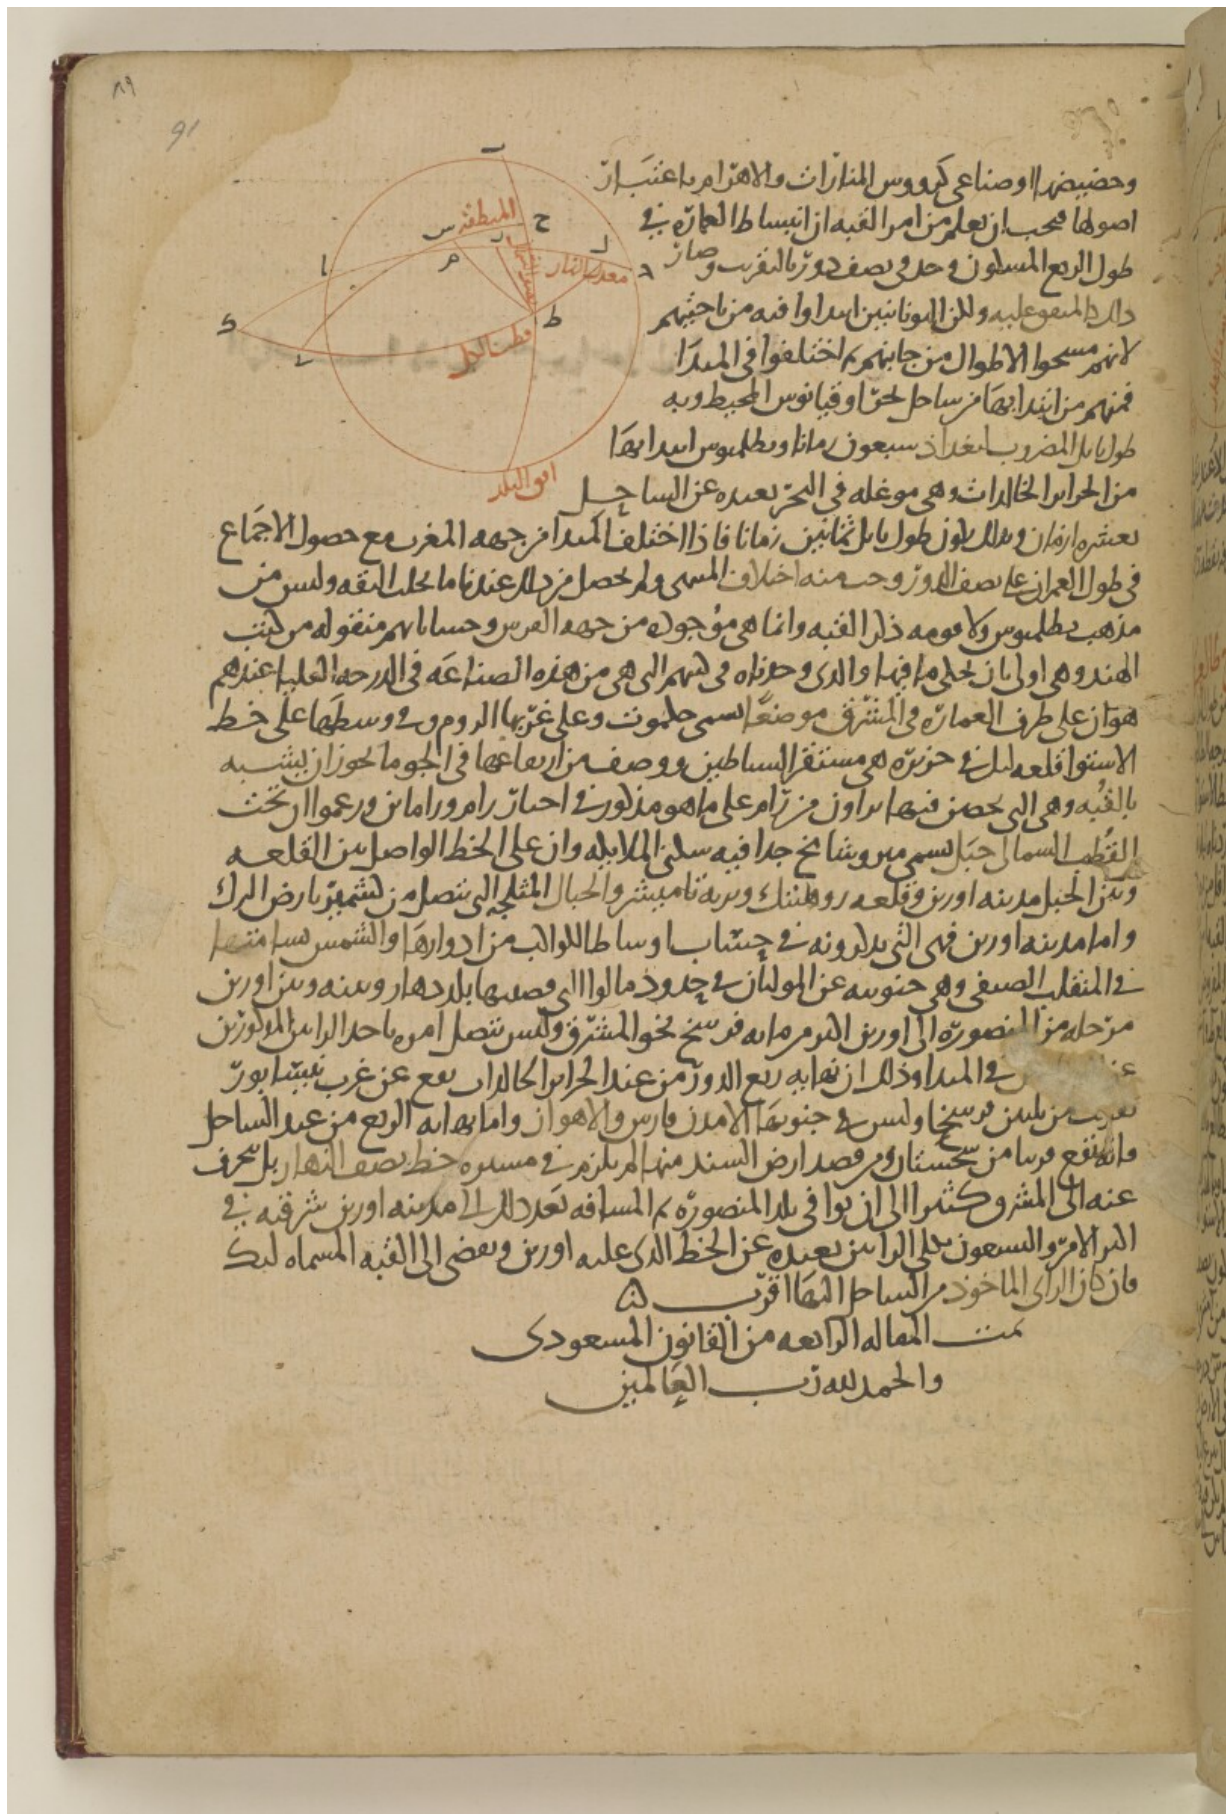 ٨٩
91
وحضيضها او صناعى كرووس المنارات والاهرام باعتبار
اصولها فيجب ان يعلم من امر القبه ان انبساط العماره في
طول الربع المسكون وجد في نصف دور بالتقريب وصار
ذلك كالمتفق عليه ولكن اليونانيين ابتداوا فيه من ناحيتهم
لانهم مسحوا الاطوال من جانبهم ثم اختلفوا في المبدا
فمنهم من ابتدا بها من ساحل بحر اوقيانوس المحيط وبه
طول بابل المضروب ببغداد سبعون زمانا وبطلميوس ابتدا بها
من الجزاير الخالدات وهى موغله في البحر بعيده عن الساحل
بعشره ازمان وبذلك يكون طول بابل ثمانين زمانا فاذا اختلف المبدا من جهه المغرب مع حصول الاجماع
في طول العمران على نصف الدور وجب منه اختلاف المنتهى ولم يحصل من ذلك عندنا ما يجلب الثقه وليس من
مذهب بطلميوس ولا قومه ذكر القبه وانما هى موجوده من جهه الفرس وحساباتهم منقوله من كتب
الهند وهى اولى بان يحكى ما فيها والذى وجدناه في كتبهم التى هى من هذه الصناعه في الدرجه العليا عندهم
هو ان على طرف العماره في المشرق موضعا يسمى جمكوت وعلى غربها الروم وفي وسطها على خط
الاستوا قلعه لنك في جزيره هى مستقر الشياطين ووصف من ارتفاعها في الجو ما يجوز ان يشبه
بالقبه وهى التى تحصن فيها راون من رام على ما هو مذكور في اخبار رام وراماين وزعموا ان تحت
القطب الشمالى جبل يسمى ميرو شامخ جدا فيه سكنى الملايكه وان على الخط الواصل بين القلعه
وبين الجبل مدينه اورين وقلعه روهتك وبريه تانيشر والجبال المثلجه التى تتصل من كشمير بارض الترك
واما مدينه اورين فهى التى يذكرونه في حساب اوساط الكواكب من ادوارها والشمس تسامتها
في المنقلب الصيفى وهى جنوبيه عن المولتان في حدود مالوا التى قصبتها بلد دهار وبينه وبين اورين
مرحله من المنصوره الى اورين اكثر من مايه فرسخ نحو المشرق وليس يتصل امره باحد الرايين المذكورين
في المبدا وذلك ان نهايه ربع الدور من عند الجزاير الخالدات يقع عن غرب نيسابور
بقريب من ثلثين فرسخا وليس في جنوبها الا مدن فارس والاهواز واما نهايه الربع من عند الساحل
فانه يقع قريبا من سجستان ومن قصد ارض السند منها لم يلزم في مسيره خط نصف النهار بل يتحرف
عنه الى المشرق كثيرا الى ان يوافى بلد المنصوره ثم المسافه بعد ذلك الى مدينه اورين شرقيه في
اكثر الامر والتسعون بكلى الرايين بعيده عن الخط الذى عليه اورين ويفضى الى القبه المسماه لنك
فان كان الراى الماخوذ من الساحل اليها اقرب
تمت المقاله الرابعه من القانون المسعودى
والحمد لله رب العالمين
ب
المنطقه
س
ح
ل
م
ا
معدل النهار
د
ط
ك
قطب الكل
افق البلد